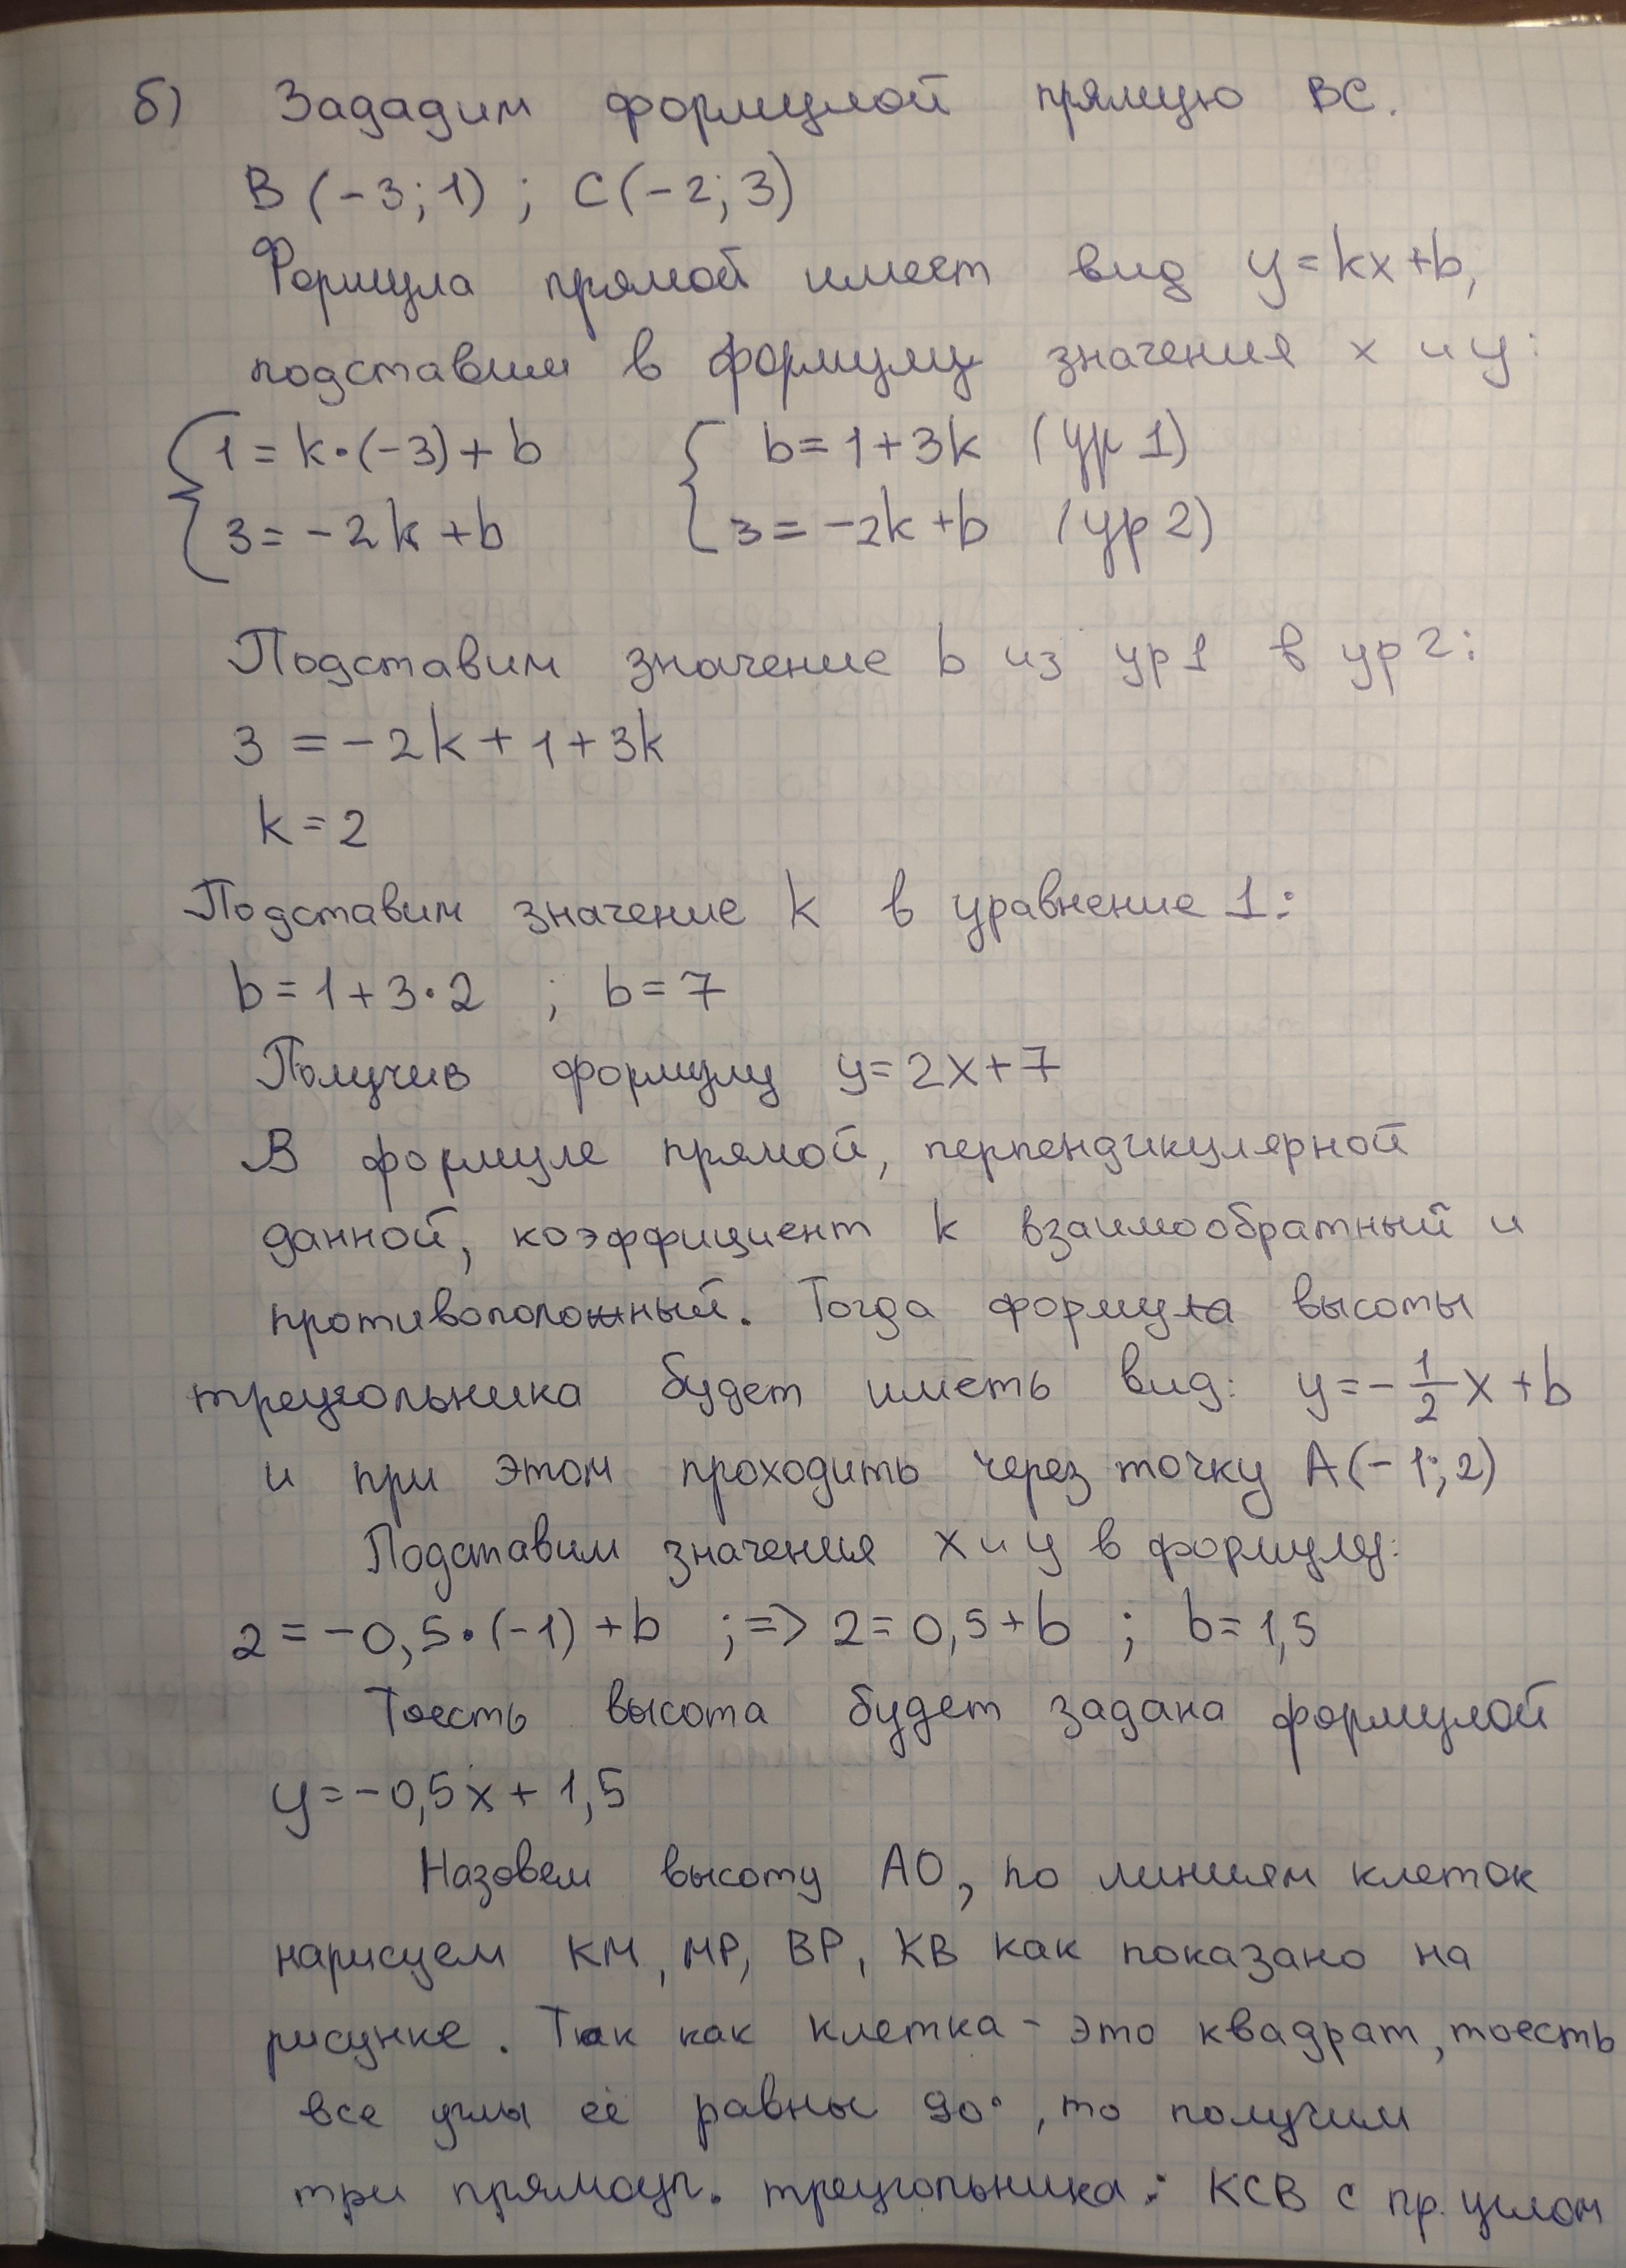 б) Зададим формулой прямую ВС.
В (-3; 1) ; С (-2; 3)
Формула прямой имеет вид y=kx+b,
подставим в формулу значения x и y:
{ 1 = k·(-3)+b { b=1+3k (ур 1)
3= -2k+b 3= -2k+b (ур 2)
Подставим значение b из ур 1 в ур 2:
3 = -2k+1+3k
k=2
Подставим значение k в уравнение 1:
b=1+3·2 ; b=7
Получив формулу y=2x+7
В формуле прямой, перпендикулярной
данной, коэффициент k взаимообратный и
противоположный. Тогда формула высоты
треугольника будет иметь вид: y=-1/2x+b
и при этом проходить через точку А(-1; 2)
Подставим значения x и y в формулу:
2=-0,5·(-1)+b ; => 2=0,5+b ; b=1,5
Тоесть высота будет задана формулой
y=-0,5x+1,5
Назовем высоту АО, по линиям клеток
нарисуем КМ, МР, ВР, КВ как показано на
рисунке. Так как клетка - это квадрат, тоесть
все углы её равны 90°, то получим
три прямоуг. треугольника: КСВ с пр. углом